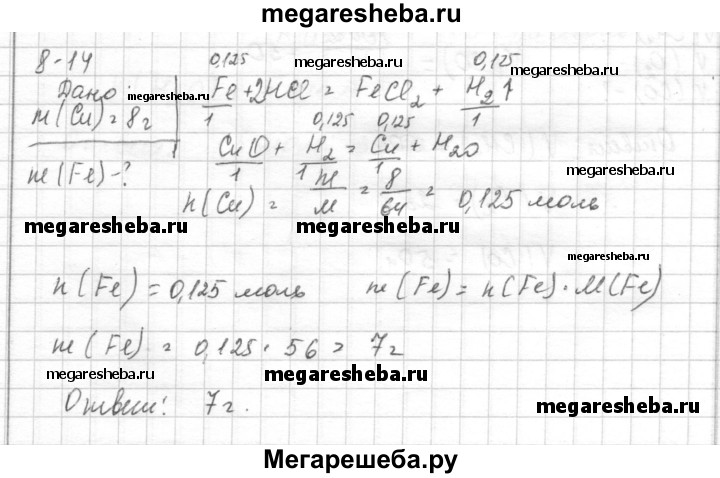 megaresheba.ru
8-14
0,125 0,125
Дано: megaresheba.ru Fe + 2HCl = FeCl2 + H2↑ megaresheba.ru
m(Cu) = 8г 1 1
0,125 0,125
CuO + H2 = Cu + H2O
1 1 1
m(Fe) - ? megaresheba.ru
n(Cu) = m/M = 8/64 = 0,125 моль
megaresheba.ru megaresheba.ru
megaresheba.ru
n(Fe) = 0,125 моль m(Fe) = n(Fe) · M(Fe)
m(Fe) = 0,125 · 56 = 7г
megaresheba.ru megaresheba.ru
Ответ: 7г.
megaresheba.ru
Мегарешеба.ру